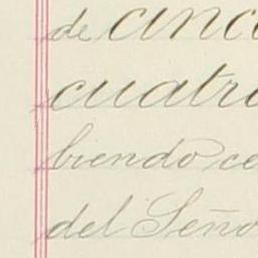 de cinco
cuatro
biendo ce
del Seño